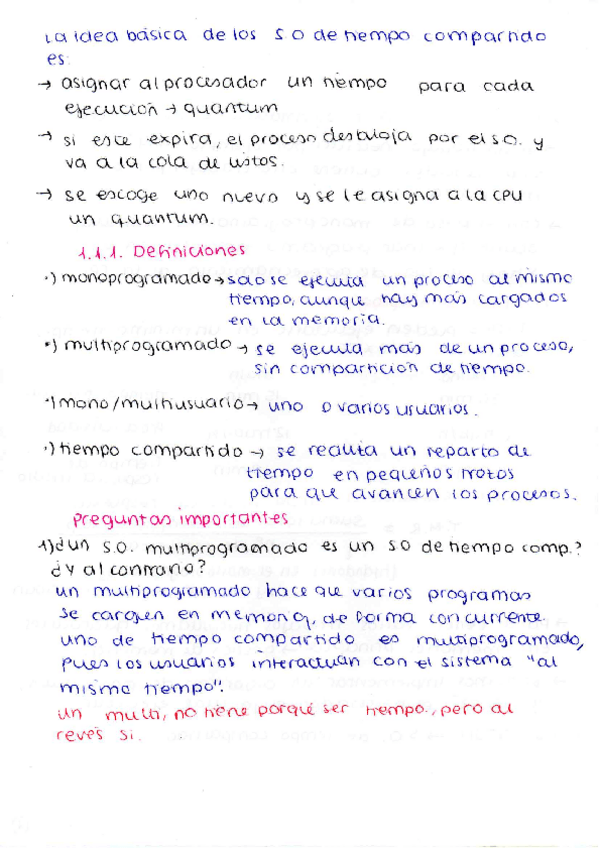 La idea básica de los S.O de tiempo compartido
es:
→ asignar al procesador un tiempo para cada
ejecución → quantum
→ si este expira, el proceso desbaloja por el s.o. y
va a la cola de listos.
→ se escoge uno nuevo y se le asigna a la CPU
un quantum.
1.1.1. Definiciones
·) monoprogramado → solo se ejecuta un proceso al mismo
tiempo, aunque hay más cargados
en la memoria.
·) multiprogramado → se ejecuta más de un proceso,
sin compartición de tiempo.
·) mono/multiusuario → uno o varios usuarios.
·) tiempo compartido → se realiza un reparto de
tiempo en pequeños trozos
para que avancen los procesos.
Preguntas importantes
1) ¿un S.O. multiprogramado es un SO de tiempo comp.?
¿y al contrario?
un multiprogramado hace que varios programas
se carguen en memoria, de forma concurrente.
uno de tiempo compartido es multiprogramado,
pues los usuarios interactúan con el sistema "al
mismo tiempo".
un multi, no tiene porqué ser tiempo., pero al
revés si.